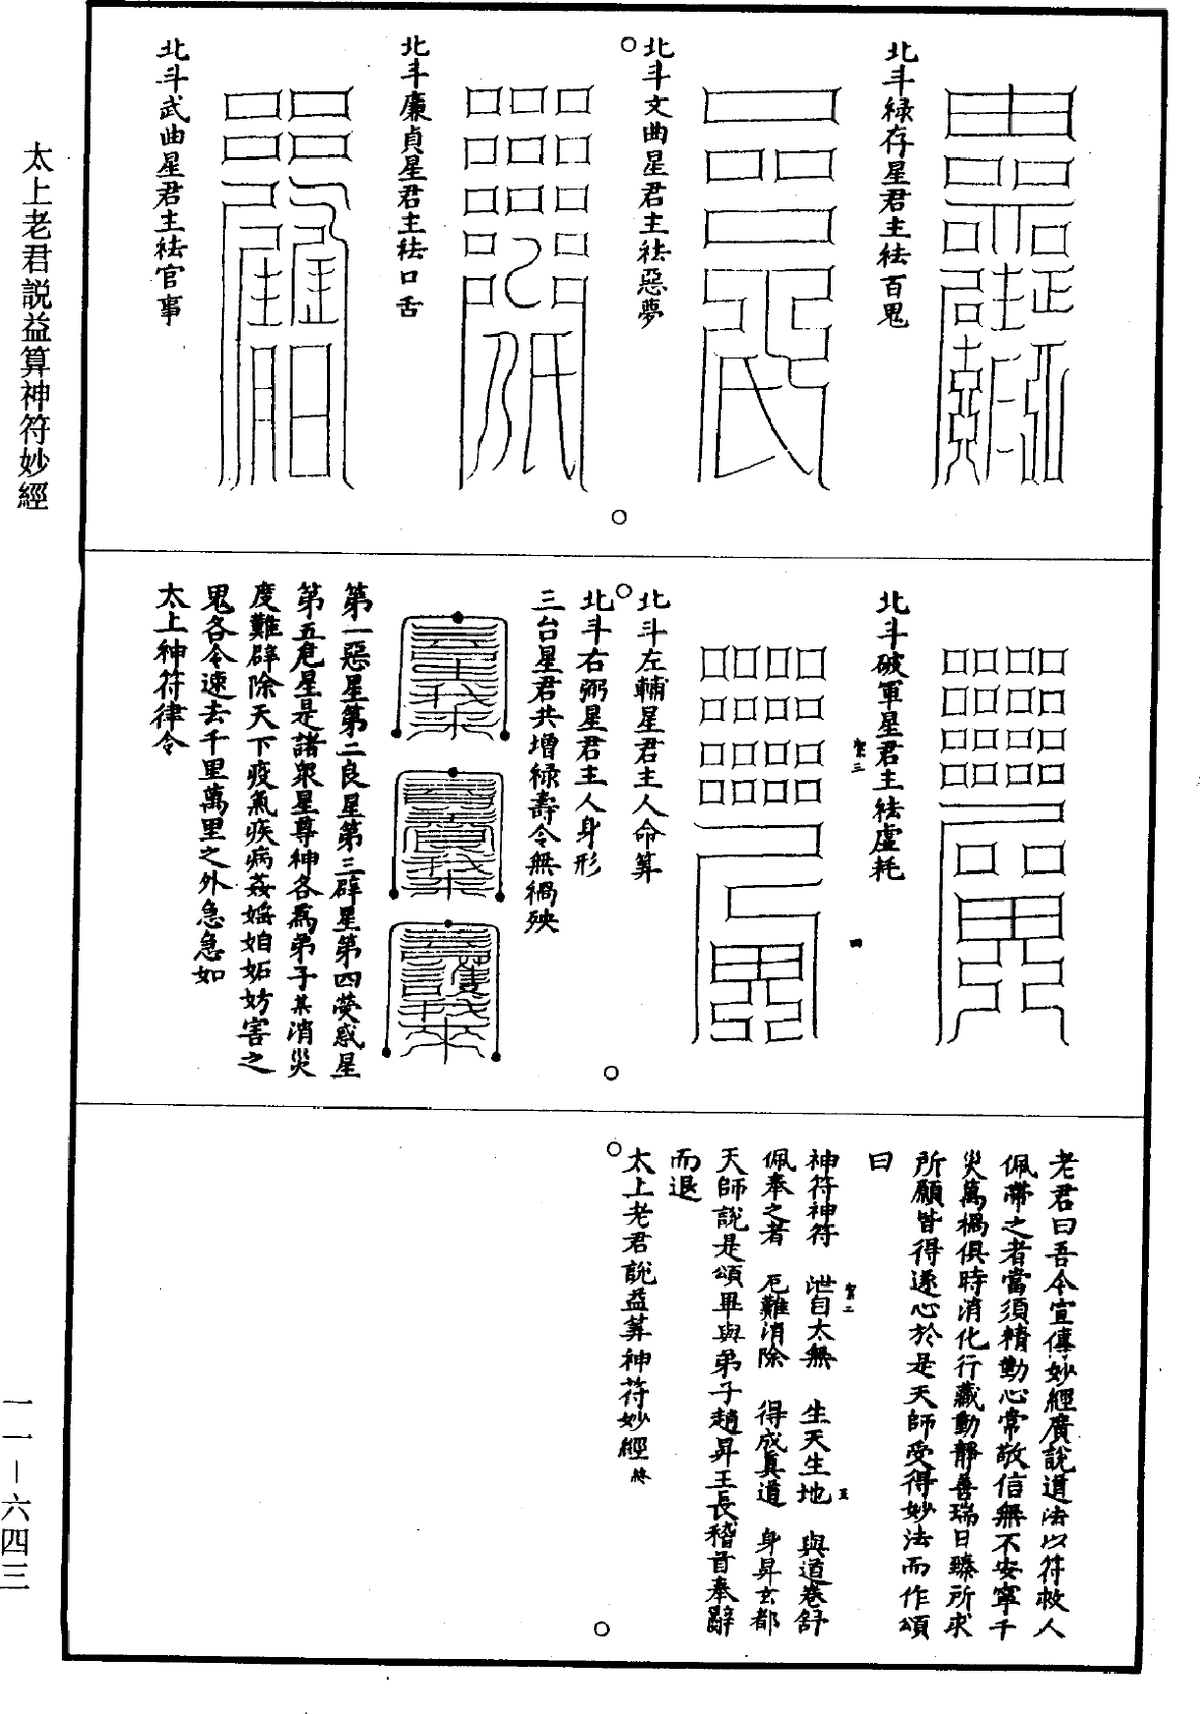 北斗祿存星君主祛百鬼
北斗文曲星君主祛惡夢
北斗廉貞星君主祛口舌
北斗武曲星君主祛官事
北斗破軍星君主祛虛耗
北斗左輔星君主人命筭
北斗右弼星君主人身形
三台星君共增祿壽令無禍殃
第一惡星第二良星第三辟星第四熒惑星
第五危星是諸衆星尊神各爲弟子某消災
度難辟除天下疫氣疾病姦婬妲妬妨害之
鬼各令速去千里萬里之外急急如
太上神符律令
老君曰吾今宣傳妙經廣說道法以符救人
佩帶之者當須精勤心常敬信無不安寧千
災萬禍俱時消化行藏動靜善瑞日臻所求
所願皆得遂心於是天師受得妙法而作頌
曰
神符神符 泄自太無 生天生地 與道卷舒
佩奉之者 厄難消除 得成真道 身昇玄都
天師說是頌畢與弟子趙昇王長稽首奉辭
而退
太上老君說益筭神符妙經 終
太上老君説益算神符妙經
一一－六四三